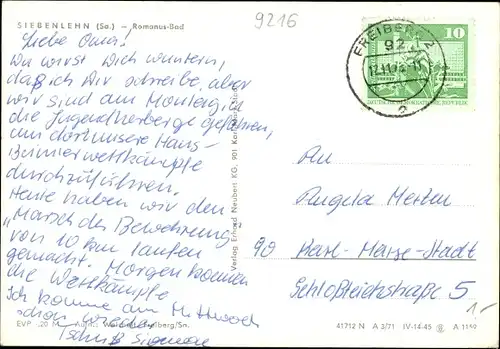 SIEBENLEHN (Sa.) – Romanus-Bad
9216
Liebe Oma!
Du wirst Dich wundern,
daß ich Dir schreibe, aber
wir sind am Montag in
die Jugendherberge gefahren,
um dort unsere Haus-
durchzuführen.
Heute haben wir den
"Marsch der Bewährung"
von 10 km Laufen
gemacht. Morgen kommen
die Wettkämpfe
Ich komme am Mittwoch
schon wieder.
Tschüß
FREIBERG 2
92
10
DEUTSCHE DEMOKRATISCHE REPUBLIK
An
Angela Merten
90 Karl-Marx-Stadt
Schloßteichstraße 5
1.-
Verlag Erhard Neubert KG, 901 Karl-Marx-Stadt
EVP -.20 M
41712 N A 3/71 IV-14-45 A 1149